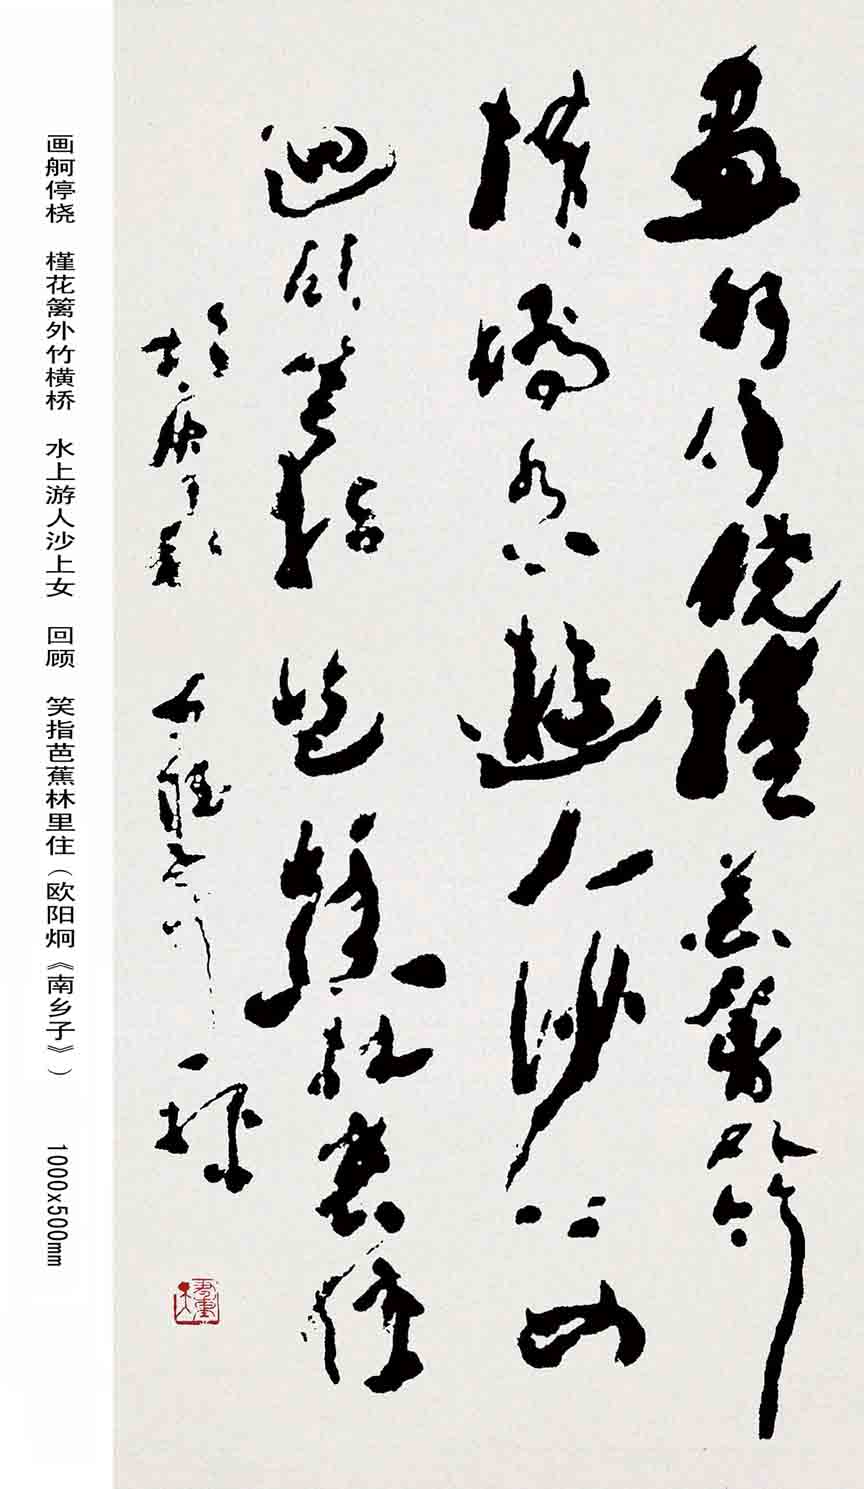 畫舸停橈槿花籬外竹
橫橋水上遊人沙上女
迴顧笑指芭蕉林裏住
画舸停桡 槿花篱外竹横桥 水上游人沙上女 回顾 笑指芭蕉林里住（欧阳炯《南乡子》） 1000x500mm